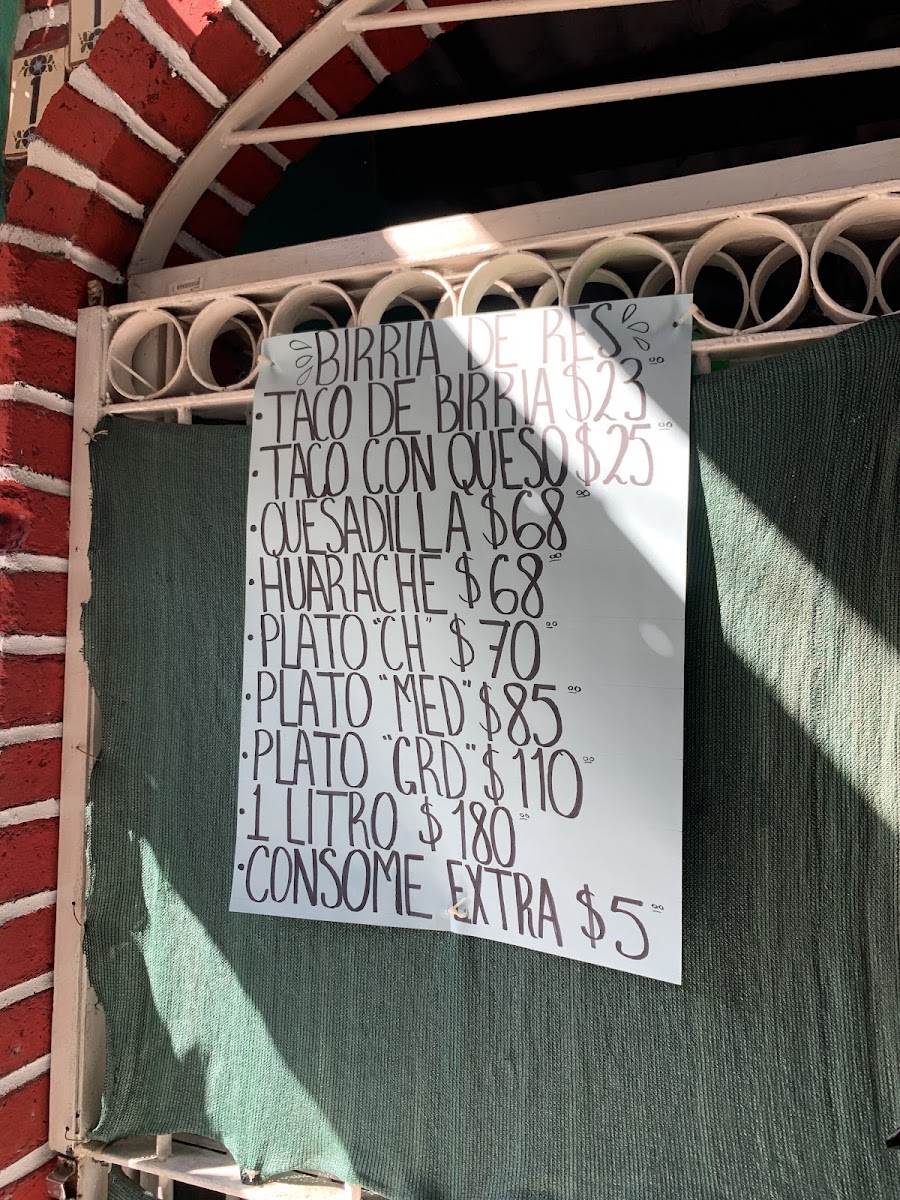 BIRRIA DE RES
• TACO DE BIRRIA $23.00
• TACO CON QUESO $25.00
• QUESADILLA $68.00
• HUARACHE $68.00
• PLATO "CH" $70.00
• PLATO "MED" $85.00
• PLATO "GRD" $110.00
• 1 LITRO $180.00
• CONSOME EXTRA $5.00